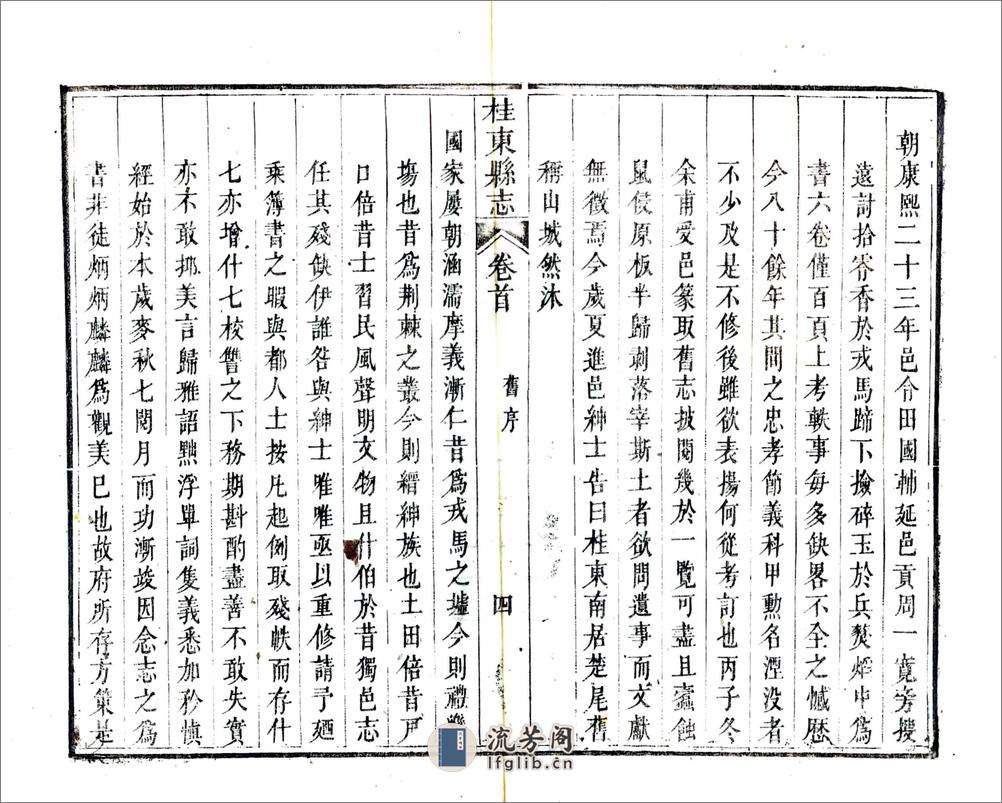 朝康熙二十三年邑令田國輔延邑貢周一寬旁搜
遠討拾零香於戎馬蹄下撿碎玉於兵燹煙中為
書六卷僅百頁上考軼事每多缺畧不全之憾歷
今八十餘年其間之忠孝節義科甲勳名湮没者
不少及是不修後雖欲表揚何從考訂也丙子冬
余甫受邑篆取舊志披閱幾於一覽可盡且蠹蝕
鼠侵原板半歸剥落宰斯土者欲問遺事而文獻
無徵焉今歲夏進邑紳士告曰桂東南居楚尾舊
稱山城然沐
桂東縣志
卷首
舊序
四
國家屢朝涵濡摩義漸仁昔為戎馬之墟今則禮樂
塲也昔為荆棘之叢今則縉紳族也土田倍昔戸
口倍昔士習民風聲明文物且什伯於昔獨邑志
任其殘缺伊誰咎與紳士唯唯亟以重修請予廼
乘簿書之暇與都人士按凡起例取殘帙而存什
七亦增什七校讐之下務期斟酌盡善不敢失實
亦不敢揶美言歸雅語黜浮單詞隻義悉加矜慎
經始於本歲麥秋七閱月而功漸竣因念志之為
書非徒炳炳麟麟為觀美已也故府所存方策是
流芳阁
lfglib.cn